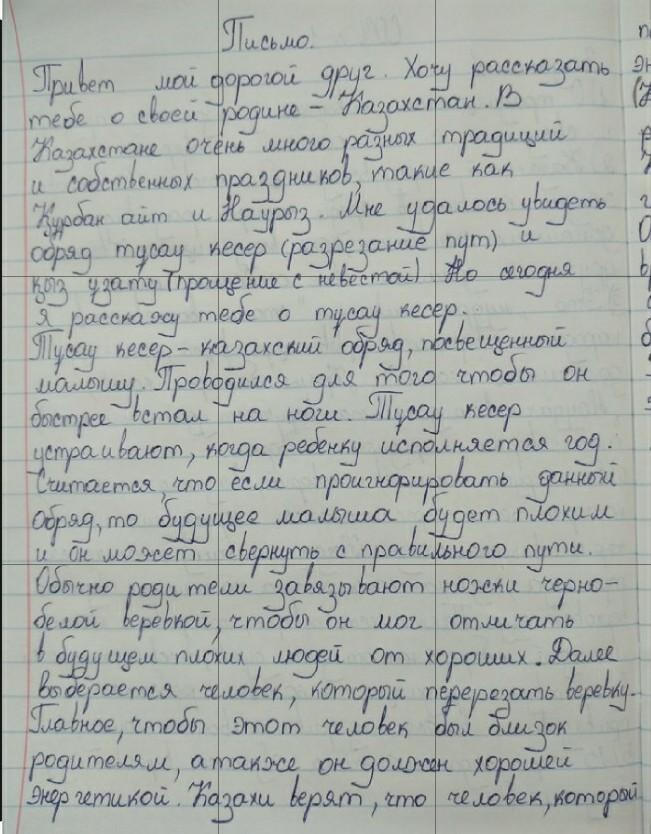 Письмо.
Привет мой дорогой друг. Хочу рассказать
тебе о своей родине – Казахстан. В
Казахстане очень много разных традиций
и собственных праздников, такие как
Курбан айт и Наурыз. Мне удалось увидеть
обряд тусау кесер (разрезание пут) и
қыз узату (прощение с невестой). Но сегодня
я расскажу тебе о тусау кесер.
Тусау кесер – казахский обряд, посвещенный
малышу. Проводился для того чтобы он
быстрее встал на ноги. Тусау кесер
устраивают, когда ребенку исполняется год.
Считается, что если проигнорировать данный
обряд, то будущее малыша будет плохим
и он может свернуть с правильного пути.
Обычно родители завязывают ножки черно-
белой веревкой, чтобы он мог отличать
в будущем плохих людей от хороших. Далее
выберается человек, который перерезать веревку.
Главное, чтобы этот человек был близок
родителям, а также он должен хорошей
энергетикой. Казахи верят, что человек, который